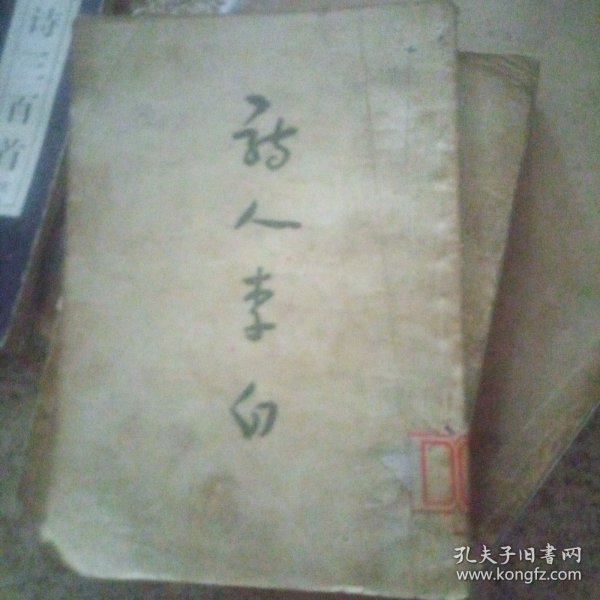 詩人李白
诗三百首
孔夫子旧书网
www.kongfz.com